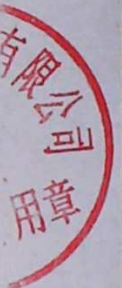 有限公司
用章